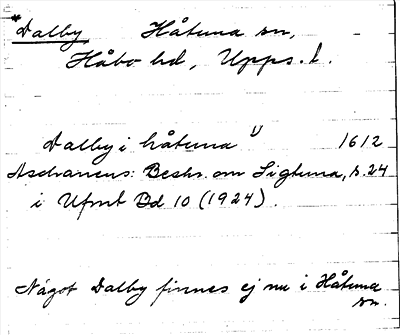 *Dalby Håtuna sn,
Håbo hd, Upps. l.
Dalby i håtuna 1) 1612
Aschaneus: Beskr. om Sigtuna, s. 24
i Ufmt Bd 10 (1924).
Något Dalby finnes ej nu i Håtuna
sn.